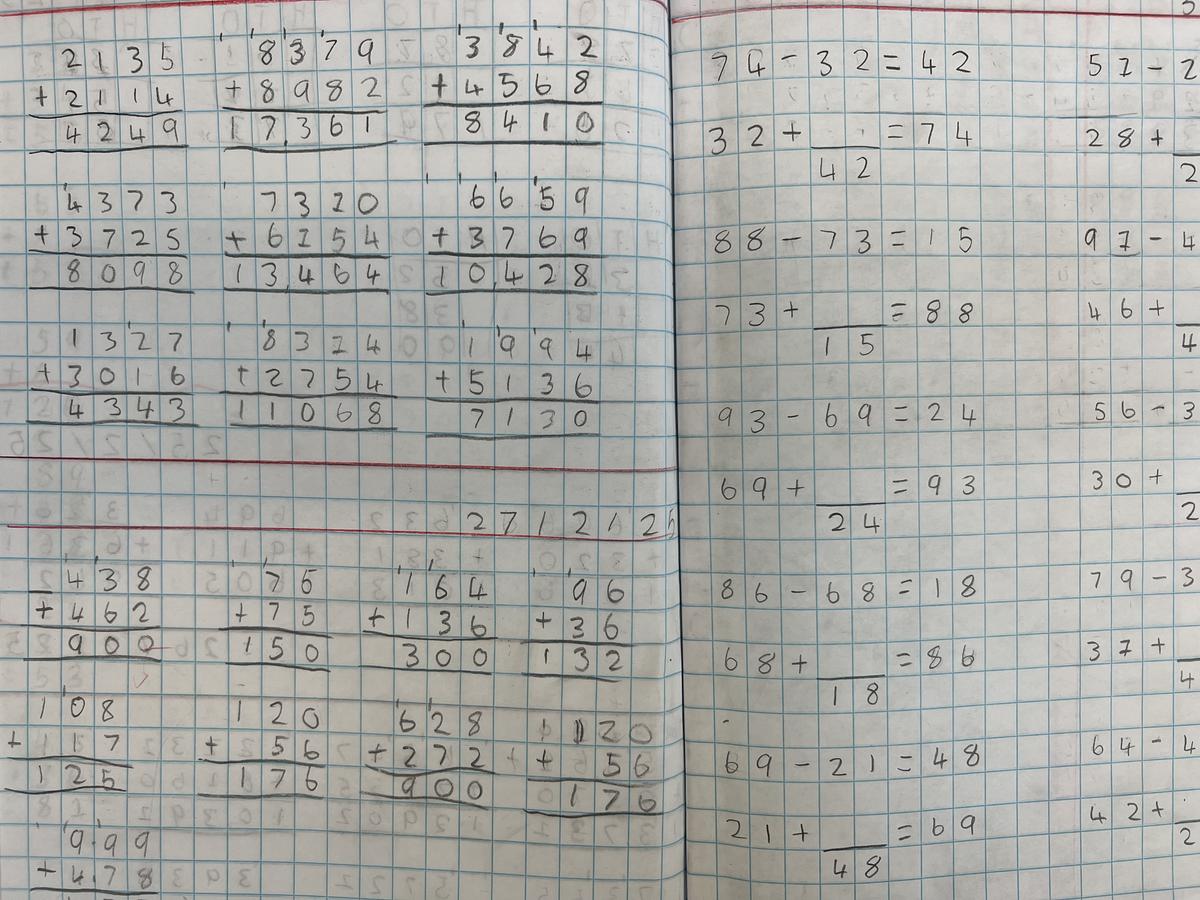 2135 8379 3842
+2114 +8982 +4568
4249 17,361 8410
4373 7310 6659
+3725 +6154 +3769
8098 13,464 10,428
1327 8314 1994
+3016 +2754 +5136
4343 11068 7130
27/2/25
438 75 164 96
+462 +75 +136 +36
900 150 300 132
108 120 628 120
+117 +56 +272 +56
125 176 900 176
999
+478
74-32=42 51-2
32+__=74 28+__
42 2
88-73=15 91-4
73+__=88 46+__
15 4
93-69=24 56-3
69+__=93 30+__
24 2
86-68=18 79-3
68+__=86 37+__
18 4
69-21=48 64-4
21+__=69 42+__
48 2